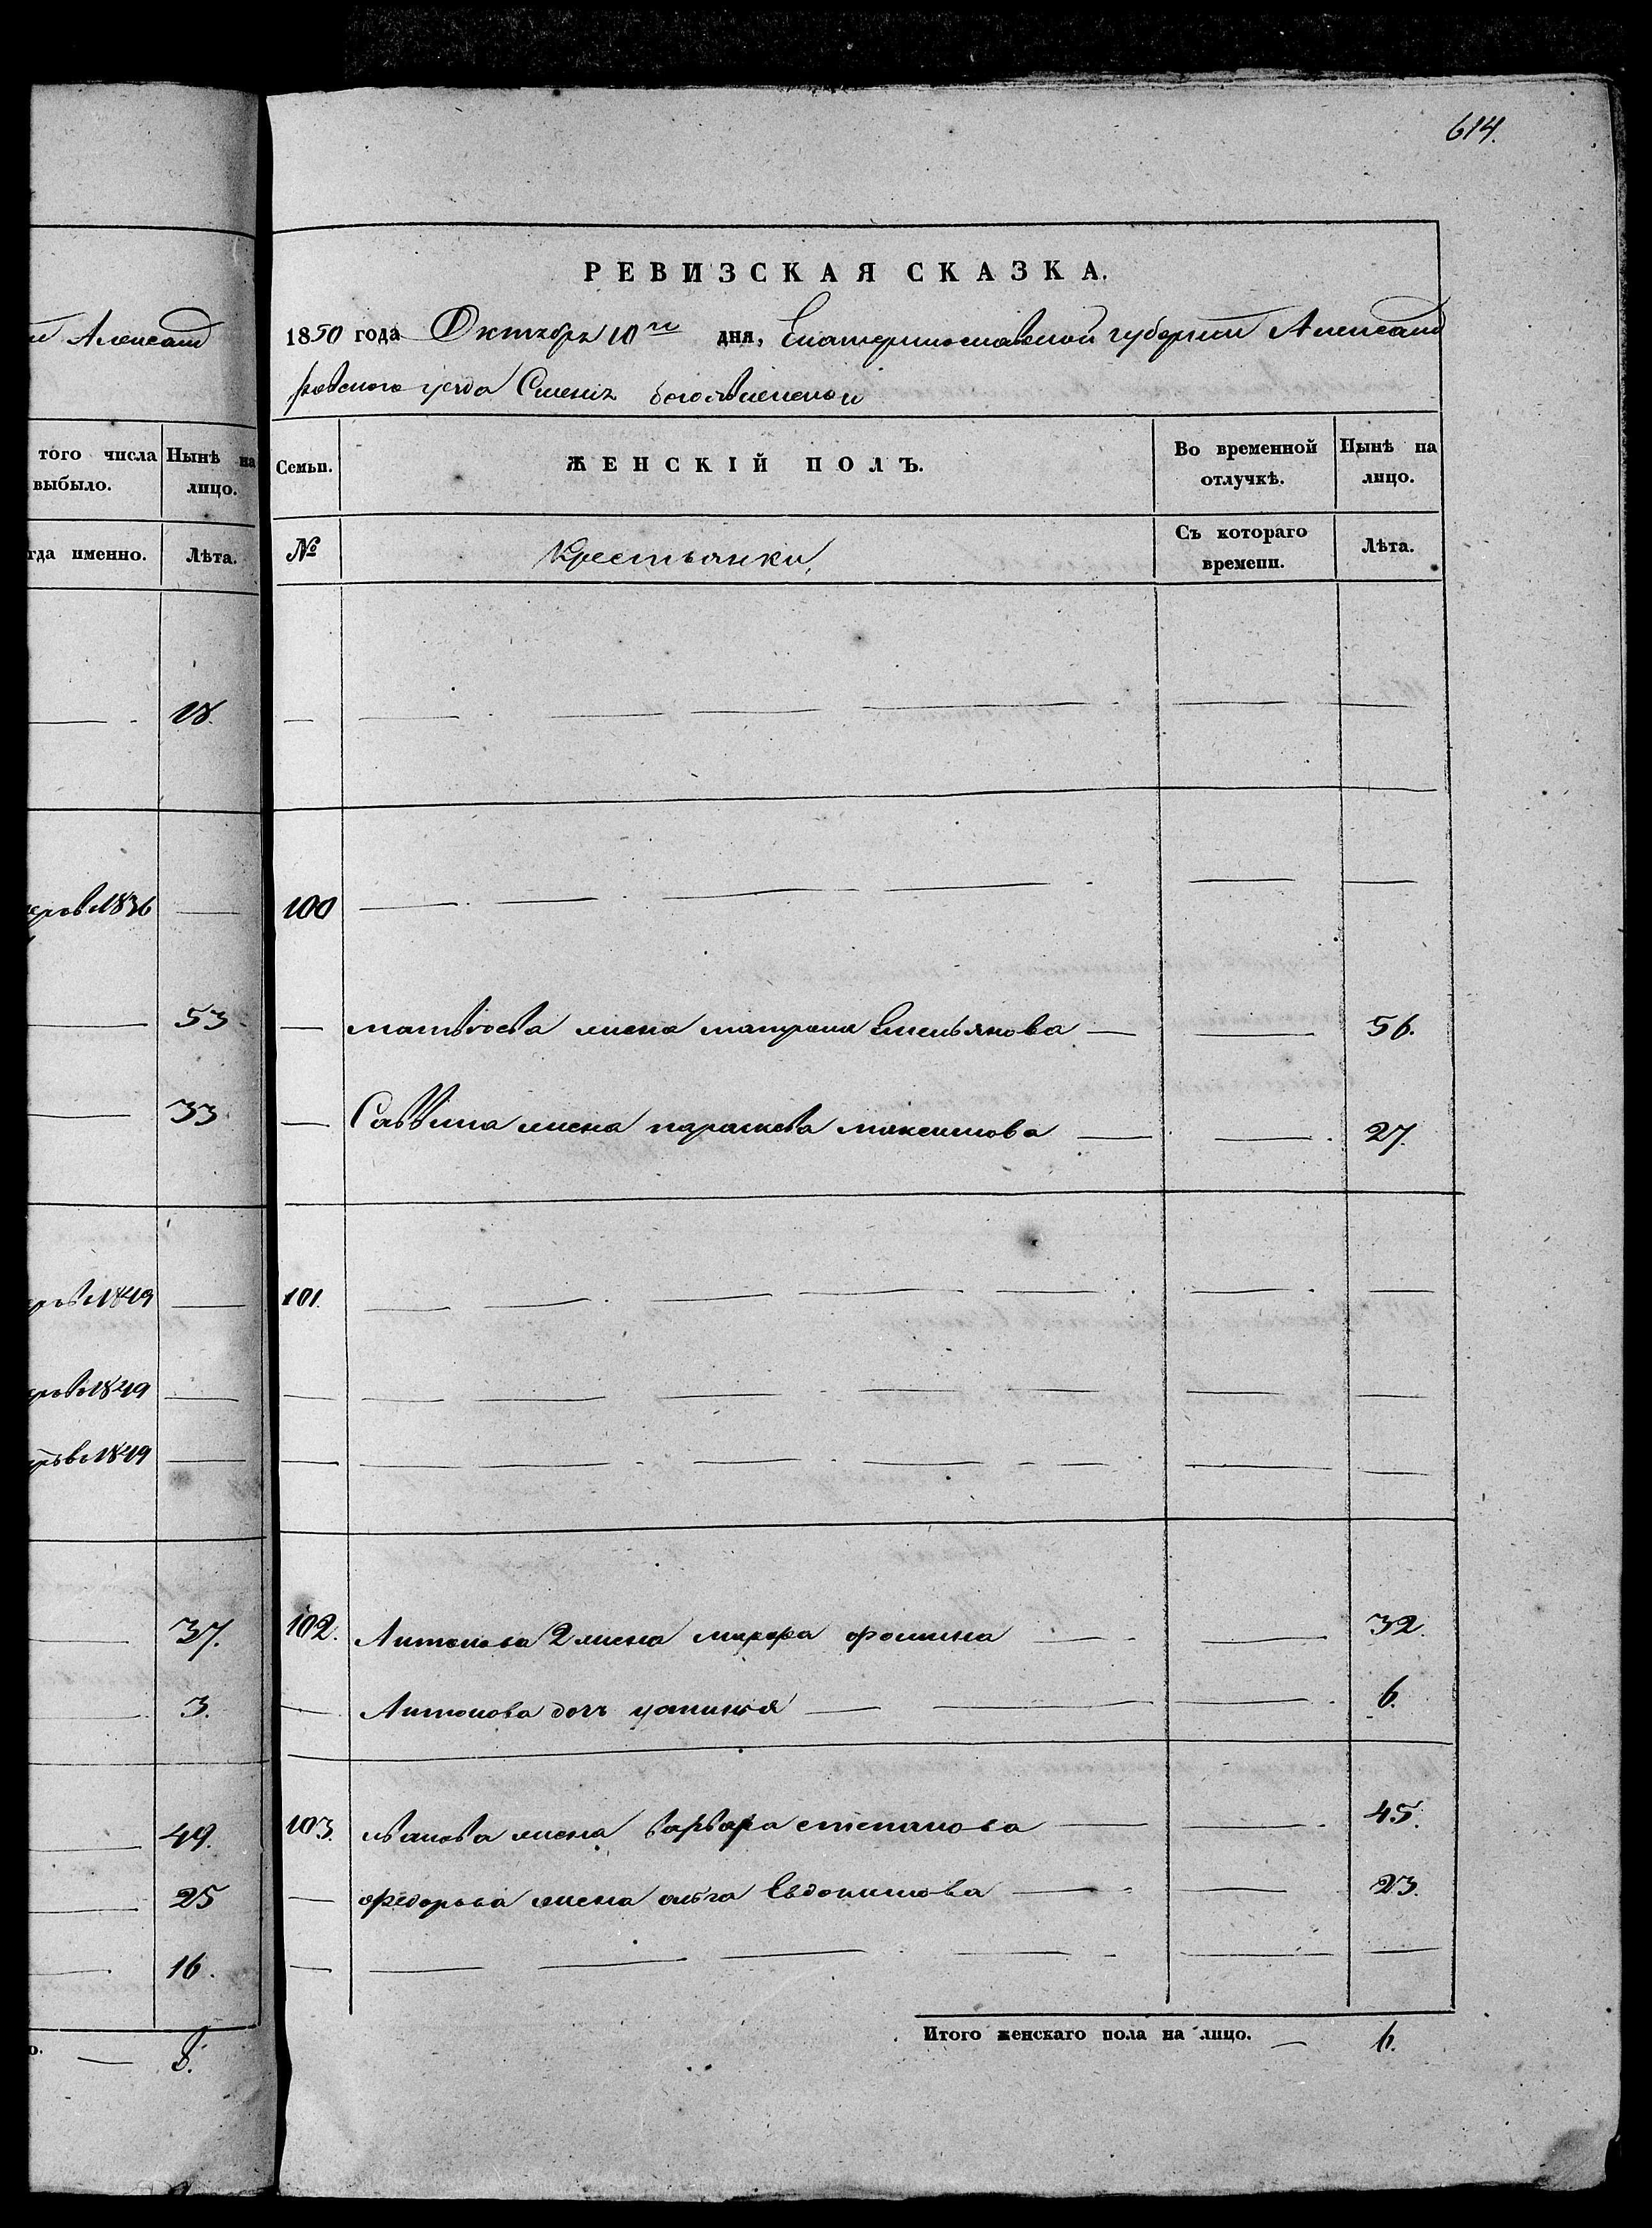 614.
РЕВИЗСКАЯ СКАЗКА.
1850 года Октября 10го дня, Екатеринославской губернии Александ
ровского уезда Селения богоявленской
й Александ
того числа выбыло.
Нынѣ на лицо.
Семьи.
ЖЕНСКІЙ ПОЛЪ.
Во временной отлучкѣ.
Нынѣ на лицо.
гда именно.
Лѣта.
№
Крестьянки,
Съ котораго времени.
Лѣта.
18.
1836 —
100
53 — Матвѣева жена матрона Емельянова — — 56.
33 — Саввина жена параскева максимова — — 27.
1849 — 101.
1849 —
1849 —
37. 102. Антонова 2 жена марфа фомина — — 32.
3. — Антонова дочь устинья — — 6.
49. 103. ивanова жена варвара степанова — — 45.
25 — федорова жена ольга Евдокимова — — 23.
16.
Итого женскаго пола на лицо. — 6.
о. — 8.